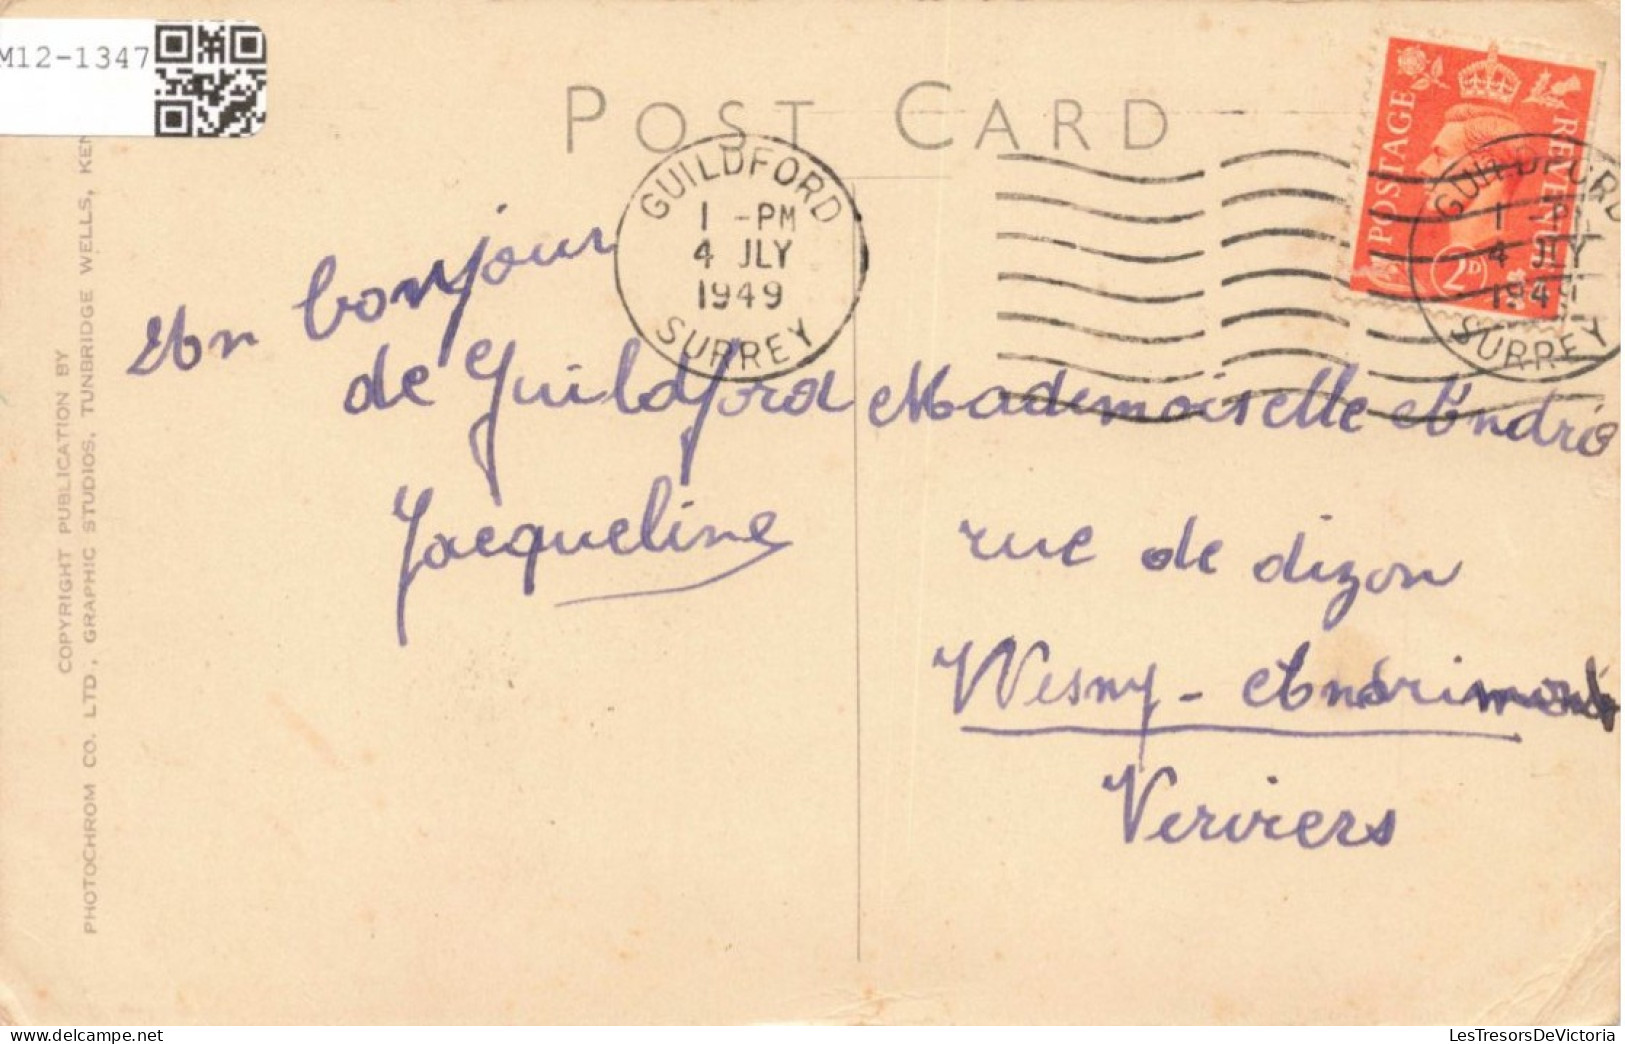 M12-1347
POST CARD
GUILDFORD
1 - PM
4 JLY
1949
SURREY
POSTAGE
REVENUE
2D
GUILDFORD
1 - PM
4 JLY
1949
SURREY
Un bonjour
de Guildford
Jacqueline
Mademoiselle
rue de dizon
Wesny -
Verviers
COPYRIGHT PUBLICATION BY
PHOTOCHROM CO. LTD., GRAPHIC STUDIOS, TUNBRIDGE WELLS, KEN
LesTresorsDeVictoria